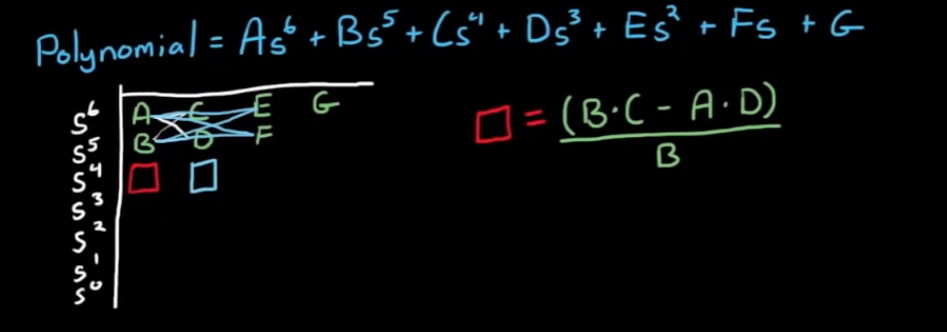 Polynomial = As⁶ + Bs⁵ + Cs⁴ + Ds³ + Es² + Fs + G
s⁶ A C E G
s⁵ B D F
s⁴
s³
s²
s¹
s⁰
□ = (B·C - A·D)
B